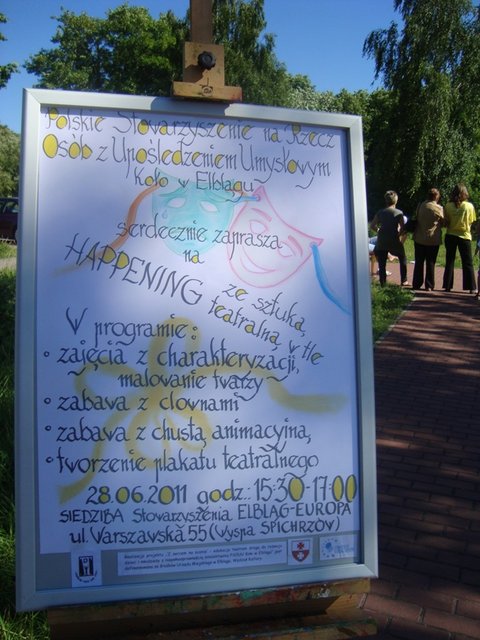 Polskie Stowarzyszenie na Rzecz
Osób z Upośledzeniem Umysłowym
Koło w Elblągu
serdecznie zaprasza
na
HAPPENING ze sztuką
teatralną w tle
W programie:
• zajęcia z charakteryzacji,
malowanie twarzy
• zabawa z clownami
• zabawa z chustą animacyjną,
• tworzenie plakatu teatralnego
28.06.2011 godz.: 15:30-17:00
SIEDZIBA Stowarzyszenia ELBLĄG-EUROPA
ul. Warszawska 55 (Wyspa SPICHRZÓW)